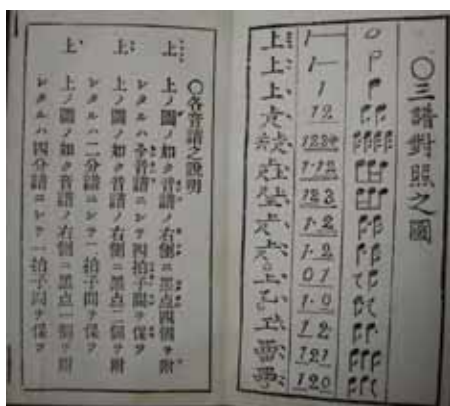 〇三譜對照之圖
上 1—
上 1—
上 1
12
1234
1·12
123
1·2
1·2
上 01
1·0
12
121
120
〇各音譜之説明
上 上ノ圖ノ如ク音譜ノ右側ニ黒点四個ヲ附
シタルハ全音譜ニシテ四拍子間ヲ保ツ
上 上ノ圖ノ如ク音譜ノ右側ニ黒点二個ヲ附
シタルハ二分譜ニシテ二拍子間ヲ保ツ
上 上ノ圖ノ如ク音譜ノ右側ニ黒点一個ヲ附
シタルハ四分譜ニシテ一拍子間ヲ保ツ